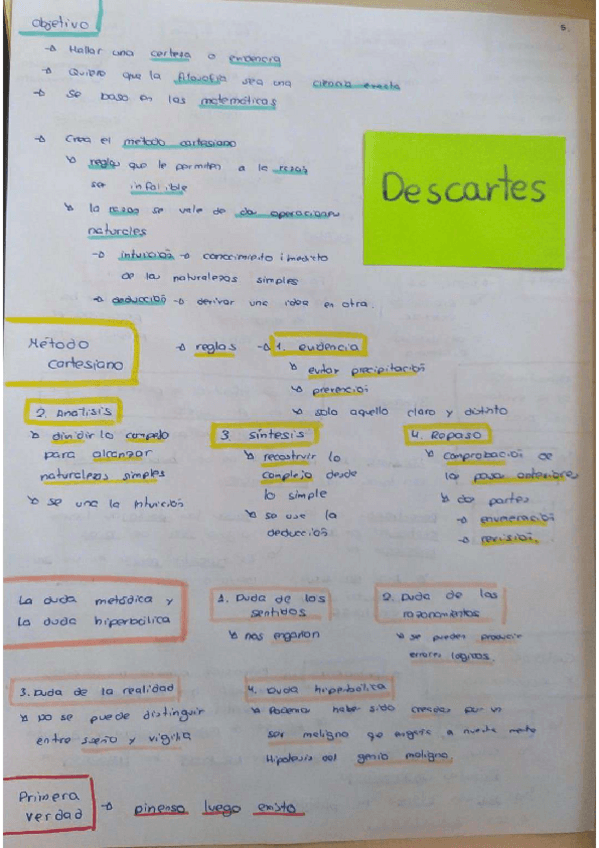 Objetivo
5.
→ Hallar una certeza o evidencia
→ Quiero que la filosofía sea una ciencia exacta
→ Se basa en las matemáticas
→ Crea el método cartesiano
↳ reglas que le permiten a la razón
ser infalible
↳ la razón se vale de dos operaciones
naturales
→ intuición → conocimiento inmediato
de las naturalezas simples
→ deducción → derivar una idea en otra.
Descartes
Método
cartesiano
→ reglas → 1. evidencia
↳ evitar precipitación
↳ prevención
↳ solo aquello claro y distinto
2. Análisis
↳ dividir lo complejo
para alcanzar
naturalezas simples
↳ se une la intuición
3 síntesis
↳ reconstruir lo
complejo desde
lo simple
↳ se use la
deducción
4. Repaso
↳ comprobación de
los pasos anteriores
↳ dos partes
→ enumeración
→ revisión.
La duda metódica y
la duda hiperbólica
1. Duda de los
sentidos
↳ nos engañan
2. Duda de los
razonamientos
↳ se pueden producir
errores lógicos.
3. Duda de la realidad
↳ no se puede distinguir
entre sueño y vigilia
4. Duda hiperbólica
↳ Podemos haber sido creados por un
ser maligno que engaña a nuestra mente
Hipótesis del genio maligno.
Primera
verdad
→ pinenso luego existo